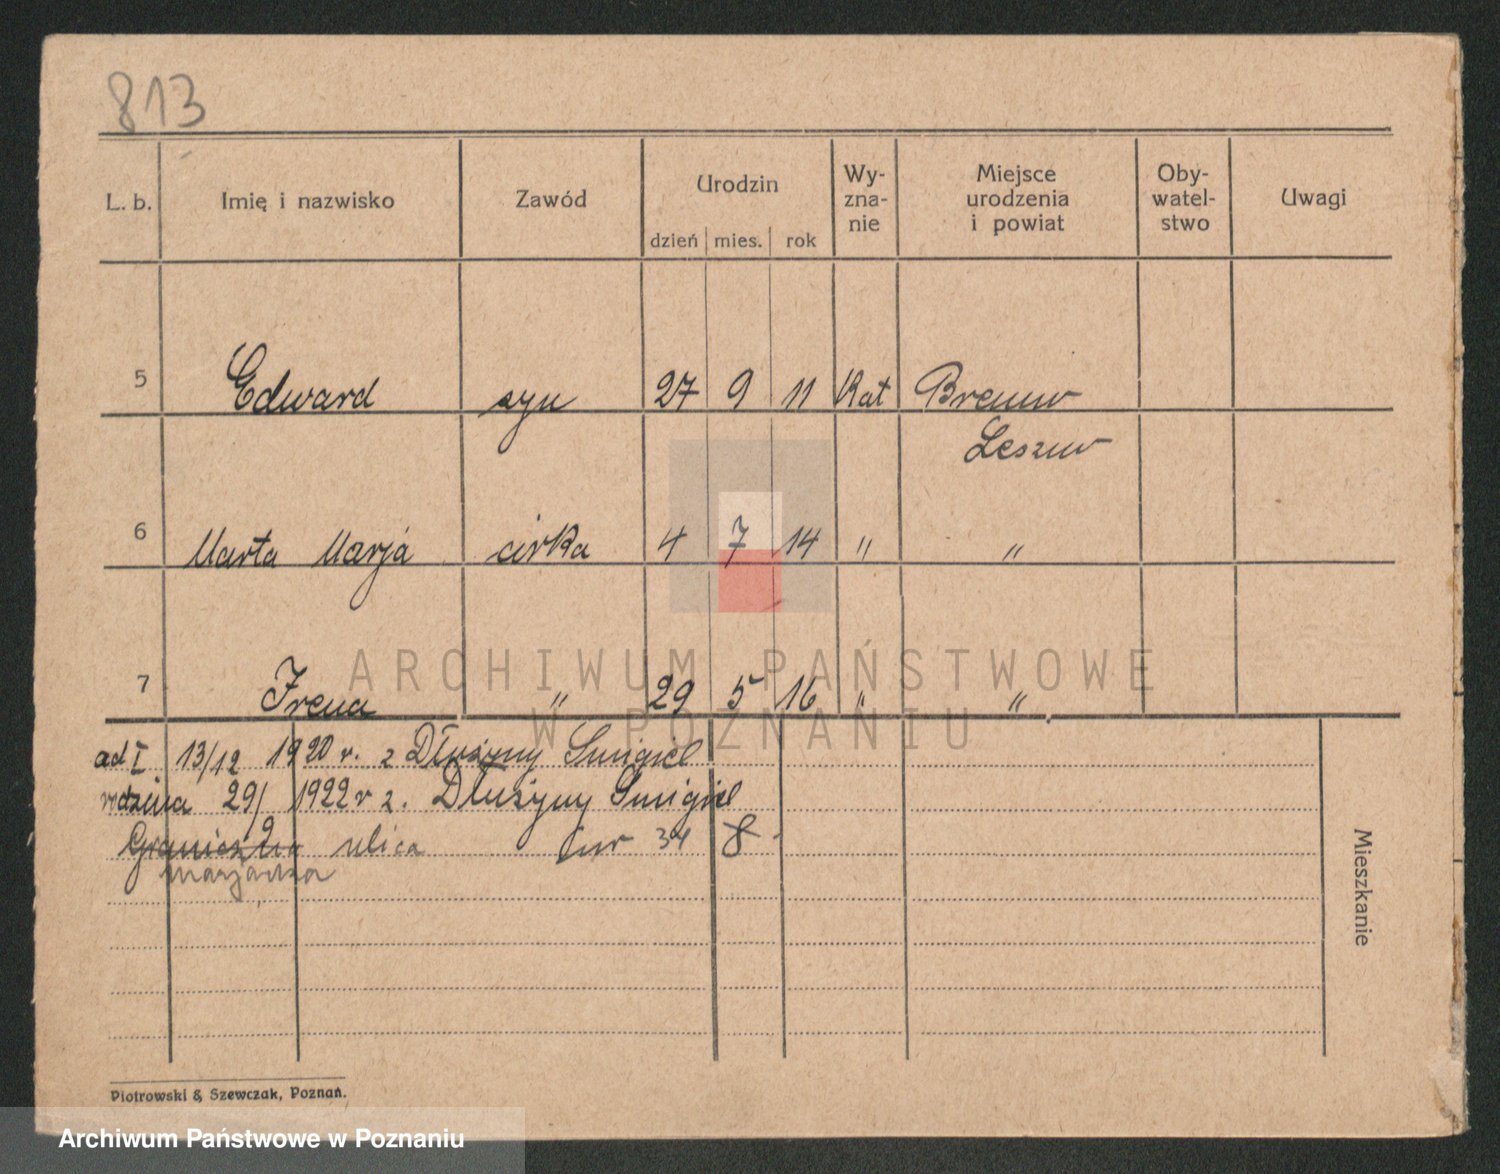 813
L. b. Imię i nazwisko Zawód Urodzin Wy- Miejsce Oby- Uwagi
zna- urodzenia watel-
dzień mies. rok nie i powiat stwo
5 Edward syn 27 9 11 Kat Brenno
Leszno
6 Marta Marja cirka 4 7 14 " "
7 Irena " 29 5 16 " "
ad I 13/12 1920 r. z Dłużyny Smigiel
rodzina 29/ 1922 r z. Dłużyny Smigiel
9
ulica nr 34 8
Mieszkanie
Piotrowski & Szewczak, Poznań.
ARCHIWUM PAŃSTWOWE
W POZNANIU
Archiwum Państwowe w Poznaniu